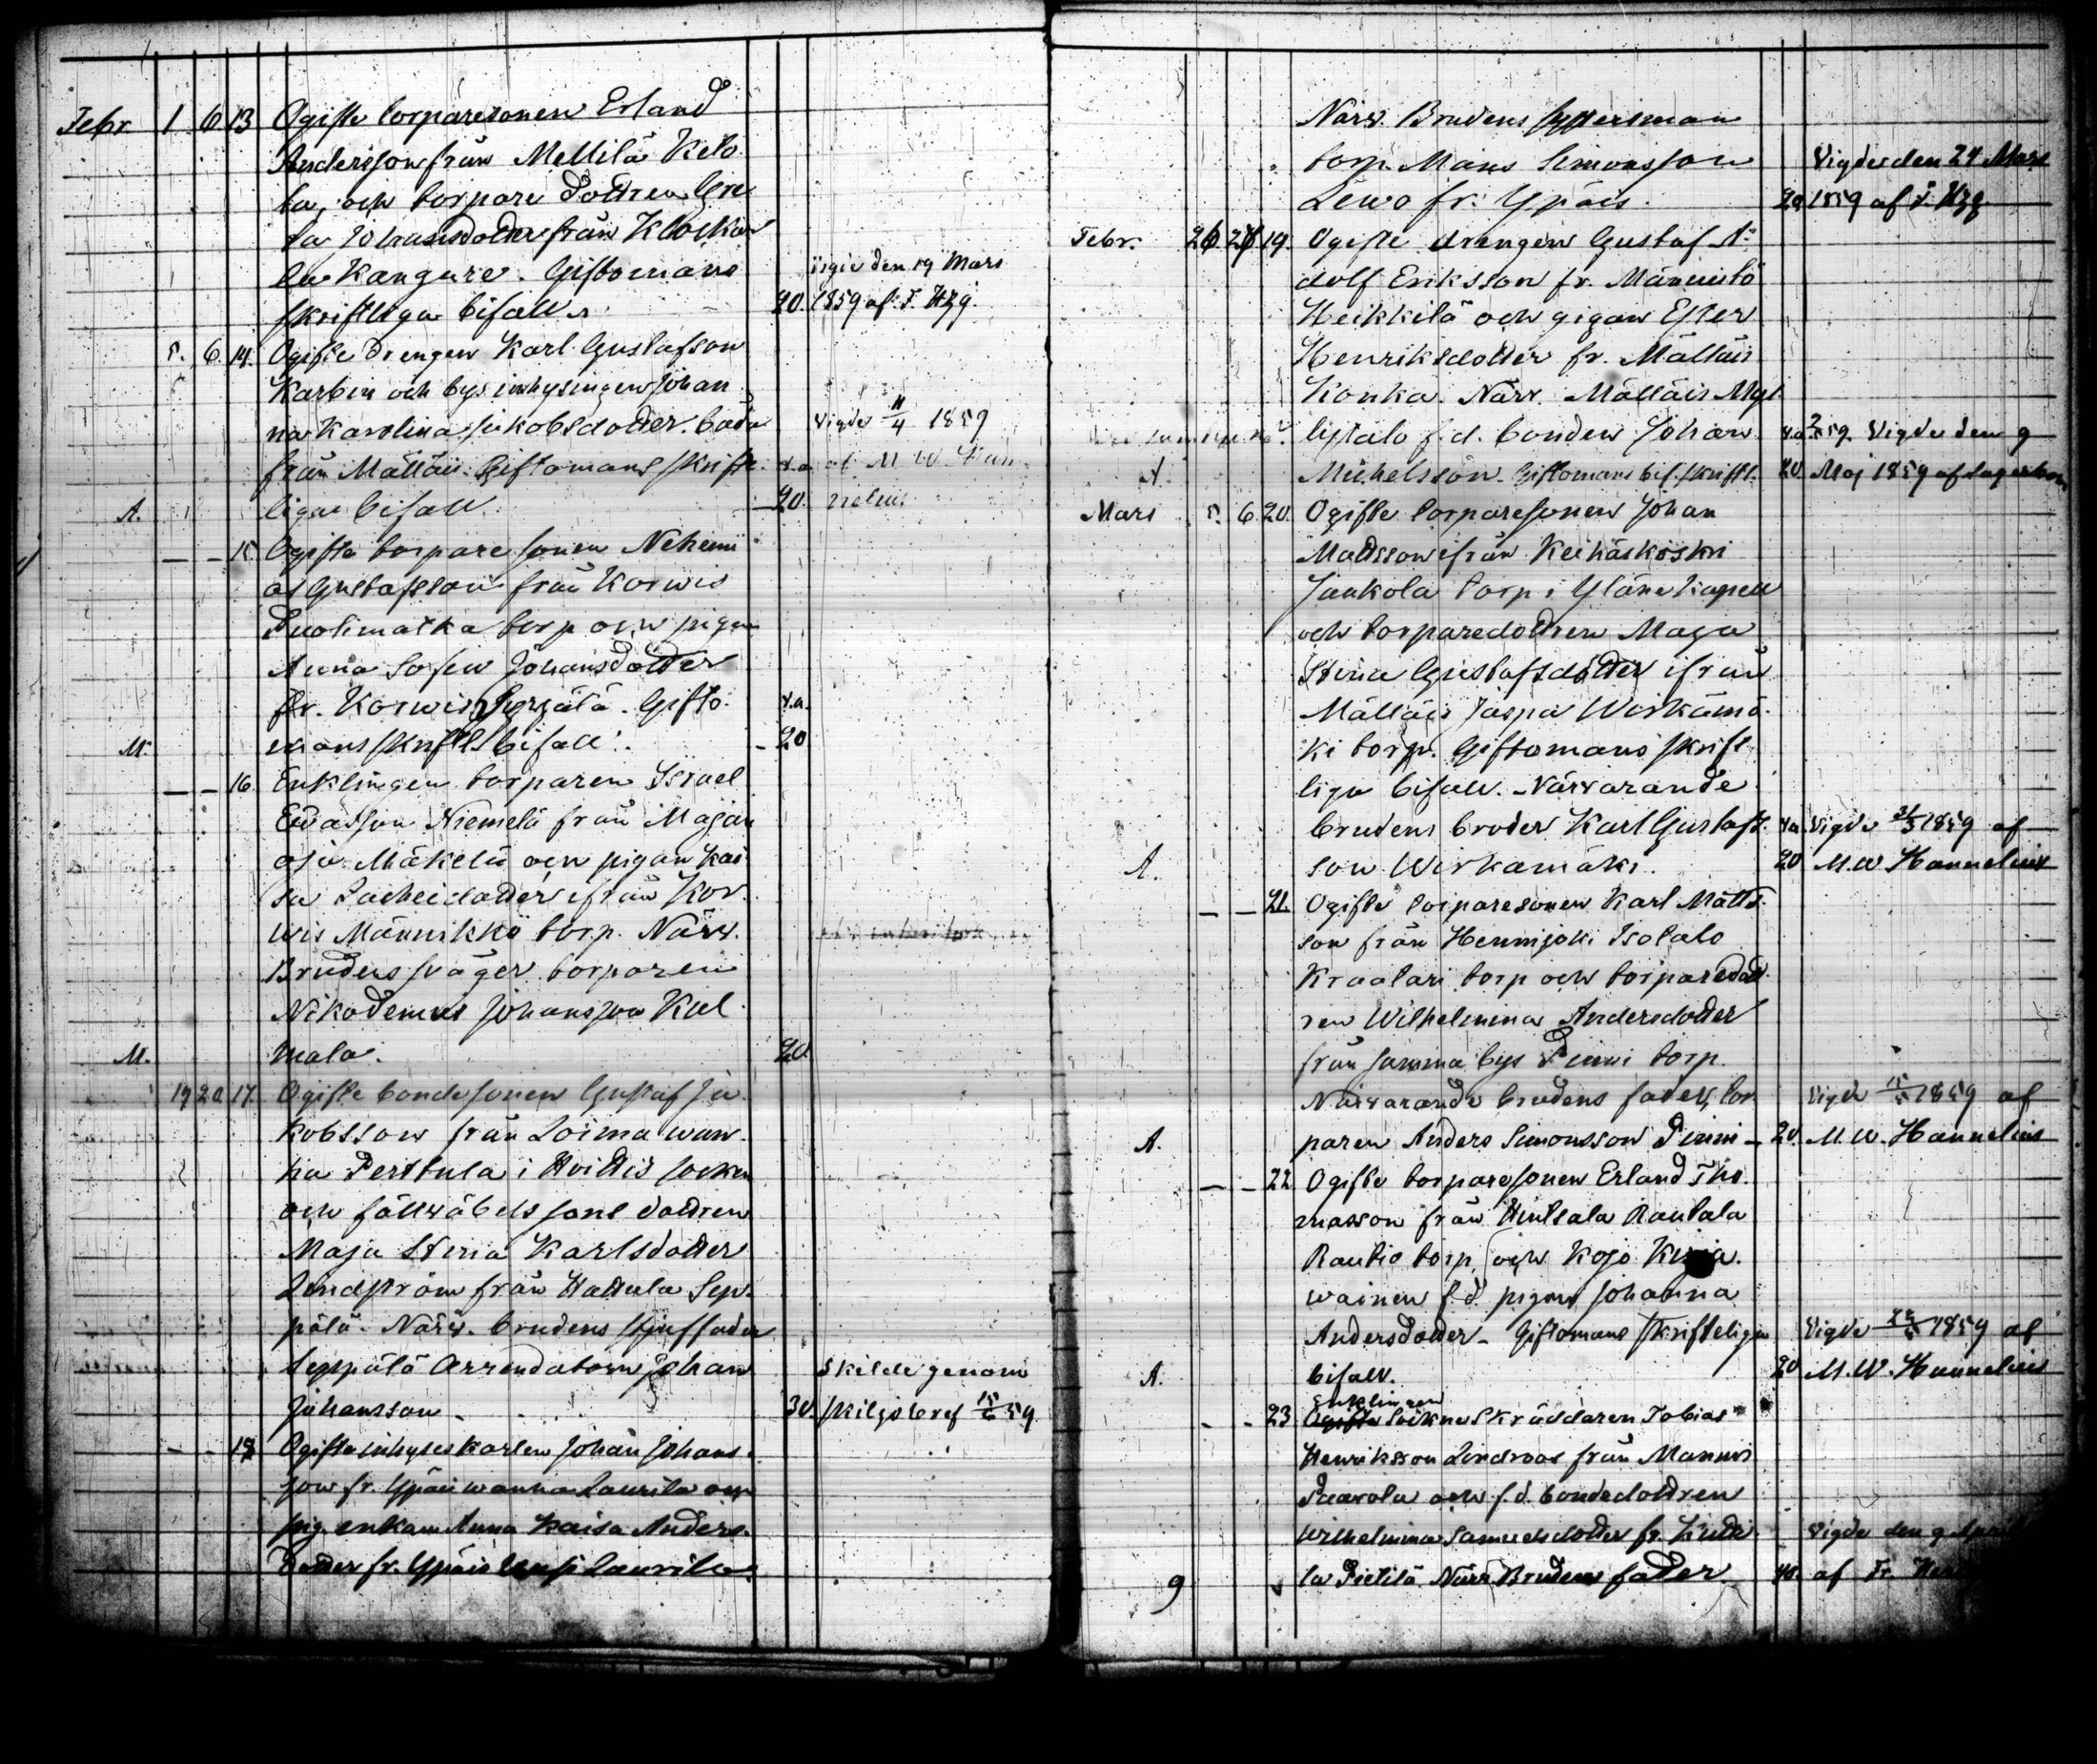 Febr 1 6 13 Ogifte torparesonen Erland
Andersson från Mellilä Keto
la, och torpare dottren Gre
ta Johansdotter från Klocka
la Kangare. Giftomans vigde den 19 Mars
skriftliga bifall. 20. 1859 af F. Hzg.
5. 6. 14. Ogifte drengen Karl Gustafson
Karbin och bys inhysingen Johan
na Karolina Jakobsdotter båda Vigde 11/4 1859
från Mälläis. Giftomans skrift- v.a. af M. W. Han
A. liga bifall. 20. nelius.
— — 15. Ogifta torpare sonen Nehemi
as Gustafsson från Korwis
Puolimatka torp och pigan
Anna Sofia Johansdotter
fr. Korwis Yrjälä. Gifto- v.a.
M. mans skriftl. bifall. - 20
— — 16. Enklingen torparen Israel
Esaiasson Niemelä från Majan
oja Mäkelä och pigan Kai
sa Zacheidotter ifrån Kor
wis Männikkö torp. Närv.
Brudens svåger torparen
Nikodemus Johansson Kul
M. mala. 20.
19 20. 17. Ogifte bondesonen Gustaf Ja
kobsson från Loima wan
ha Perttula i Hvittis socken
och fältväbels sons dottren
Maja Stina Karlsdotter
Lindström från Hattula Sep
pälä. Närv. brudens stjuffader
Seppälä Arrendatorn Johan Skilde genom
Johansson. 30. skiljobref 15/6 59.
— - 18 Ogifta inhyses karlen Johan Johans-
son fr. Ypäis wanha Laurila och
pig. enkan Anna Kaisa Anders-
dotter fr. Ypäis Uusi Laurila.
Närv. Brudens systersman
torp. Måns Simonsson Vigde den 24 Mars
Lewo fr. Ypäis. 20 1859 af F. Hzg
Febr. 26 27 19. Ogifte drengen Gustaf A-
dolf Eriksson fr. Männistö
Heikkilä och pigan Ester
Henriksdotter fr. Mälläis
Konka. Närv. Mälläis Myl
lystalo f.d. bonden Johan v.a. 59. Vigde den 9
A. Michelsson. Giftomans bif. skriftl. 20. Maj 1859 af Lagerbom
Mars 5. 6. 20. Ogifte torparesonen Johan
Mattsson ifrån Keihäskoski
Jankola torp i Yläne Kapell
och torparedottren Maja
Stina Gustafsdotter ifrån
Mälläis Jaspa Wirkämä
ki torp. Giftomans skrift
liga bifall. Närvarande
brudens broder Karl Gustafs- v.a. Vigde 31/3 1859 af
A. son Wirkamäki. 20 M. W. Hannelius
— — 21. Ogifte torparesonen Karl Matts-
son från Hennijoki Isotalo
Kraatari torp och torparedott-
ren Wilhelmina Andersdotter
från samma bys Pinni torp.
Närvarande brudens fader, tor Vigde 1859 af
A. paren Anders Simonsson Pinni — 20. M. W. Hannelius
— — 22 Ogifte torparesonen Erland Tho-
masson från Hintsala Rautala
Rautio torp, och Kojo
wainen f.d. pigan Johanna
Andersdotter. Giftomans skrifteliga Vigde 1859 af
A. bifall. 20 M. W. Hannelius
Enklingen
- - 23 Ogifte sockneskräddaren Tobias
Henriksson Lindroos från Mannis
Paavola och f.d. bondedottren
Wilhelmina Samuelsdotter fr. Vigde den 9 April
9 la Pietilä. Närv. Brudens fader. 40. af Fr.